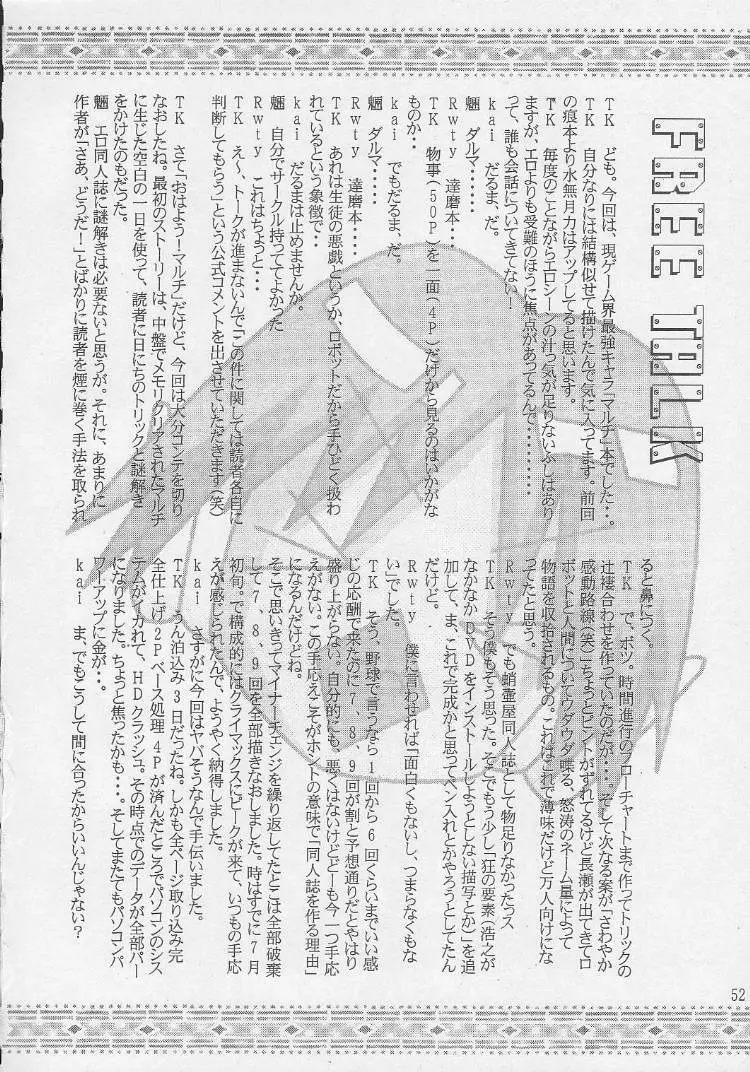 FREE TALK
TK　ども。今回は、現ゲーム界最強キャラ「マルチ」本でした・・。
TK　自分なりには結構似せて描けたんで気に入ってます。前回
の痕本より水無月力はアップしてると思います。
TK　毎度のことながらエロシーンの汁っ気が足りないふしはあり
ますが、エロよりも受難のほうに焦点があってるんで・・・・・・・・・
って、誰も会話についてきてない！
kai　だるま、だ。
魎　ダルマ・・・・・
Rwty　達磨本・・・・
TK　物事（50P）を一面（4P）だけから見るのはいかがな
ものか・・
kai　でもだるま、だ。
魎　ダルマ・・・・・
Rwty　達磨本・・・・
TK　あれは生徒の悪戯というか、ロボットだから手ひどく扱わ
れているという象徴で・・
kai　だるまは止めませんか。
魎　自分でサークル持っててよかった
Rwty　これはちょっと・・・
TK　え～、トークが進まないんで「この件に関しては読者各自に
判断してもらう」という公式コメントを出させていただきます（笑）
TK　さて「おはよう！マルチ」だけど、今回は大分コンテを切り
なおしたね。最初のストーリーは、中盤でメモリクリアされたマルチ
に生じた空白の一日を使って、読者に日にちのトリックと謎解き
をかけたのもだった。
魎　エロ同人誌に謎解きは必要ないと思うが。それに、あまりに
作者が「さあ、どうだ！」とばかりに読者を煙に巻く手法を取られ
ると鼻につく。
TK　で、ボツ。時間進行のフローチャートまで作ってトリックの
辻褄合わせを作っていたのだが・・・・。そして次なる案が「さわやか
感動路線（笑）」ちょっとピントがずれてるけど長瀬が出てきてロ
ボットと人間についてウダウダ喋る、怒涛のネーム量によって
物語を収拾されるもの。これはこれで薄味だけど万人向けにな
ってたと思う。
Rwty　でも蛸壷屋同人誌として物足りなかったっス
TK　そう僕もそう思った。そこでもう少し「狂の要素（浩之が
なかなかDVDをインストールしようとしない描写とか）」を追
加して、ま、これで完成かと思ってペン入れとかやろうとしてたん
だけど。
Rwty　僕に言わせれば「面白くもないし、つまらなくもな
い」でした。
TK　そう、野球で言うなら1回から6回くらいまでいい感
じの応酬で来たのに7、8、9回が割と予想通りだとやはり
盛り上がらない。自分的にも。悪くはないけどどーも今一つ手応
えがない。この手応えこそがホントの意味で「同人誌を作る理由」
になるんだけどね。
そこで思いきってマイナーチェンジを繰り返してたとこは全部破棄
して7、8、9回を全部描きなおしました。時はすでに7月
初旬。で構成的にはクライマックスにピークが来て、いつもの手応
えが感じられたんで、ようやく納得しました。
kai　さすがに今回はヤバそうなんで手伝いました。
TK　うん泊込み3日だったね。しかも全ページ取り込み完
全仕上げ2Pベース処理4Pが済んだところでパソコンのシス
テムがイカれて、HDクラッシュ。その時点でのデータが全部パー
になりました。ちょっと焦ったかも・・・。そしてまたてもパソコンパ
ワーアップに金が・・。
kai　ま、でもこうして間に合ったからいいんじゃない？
52